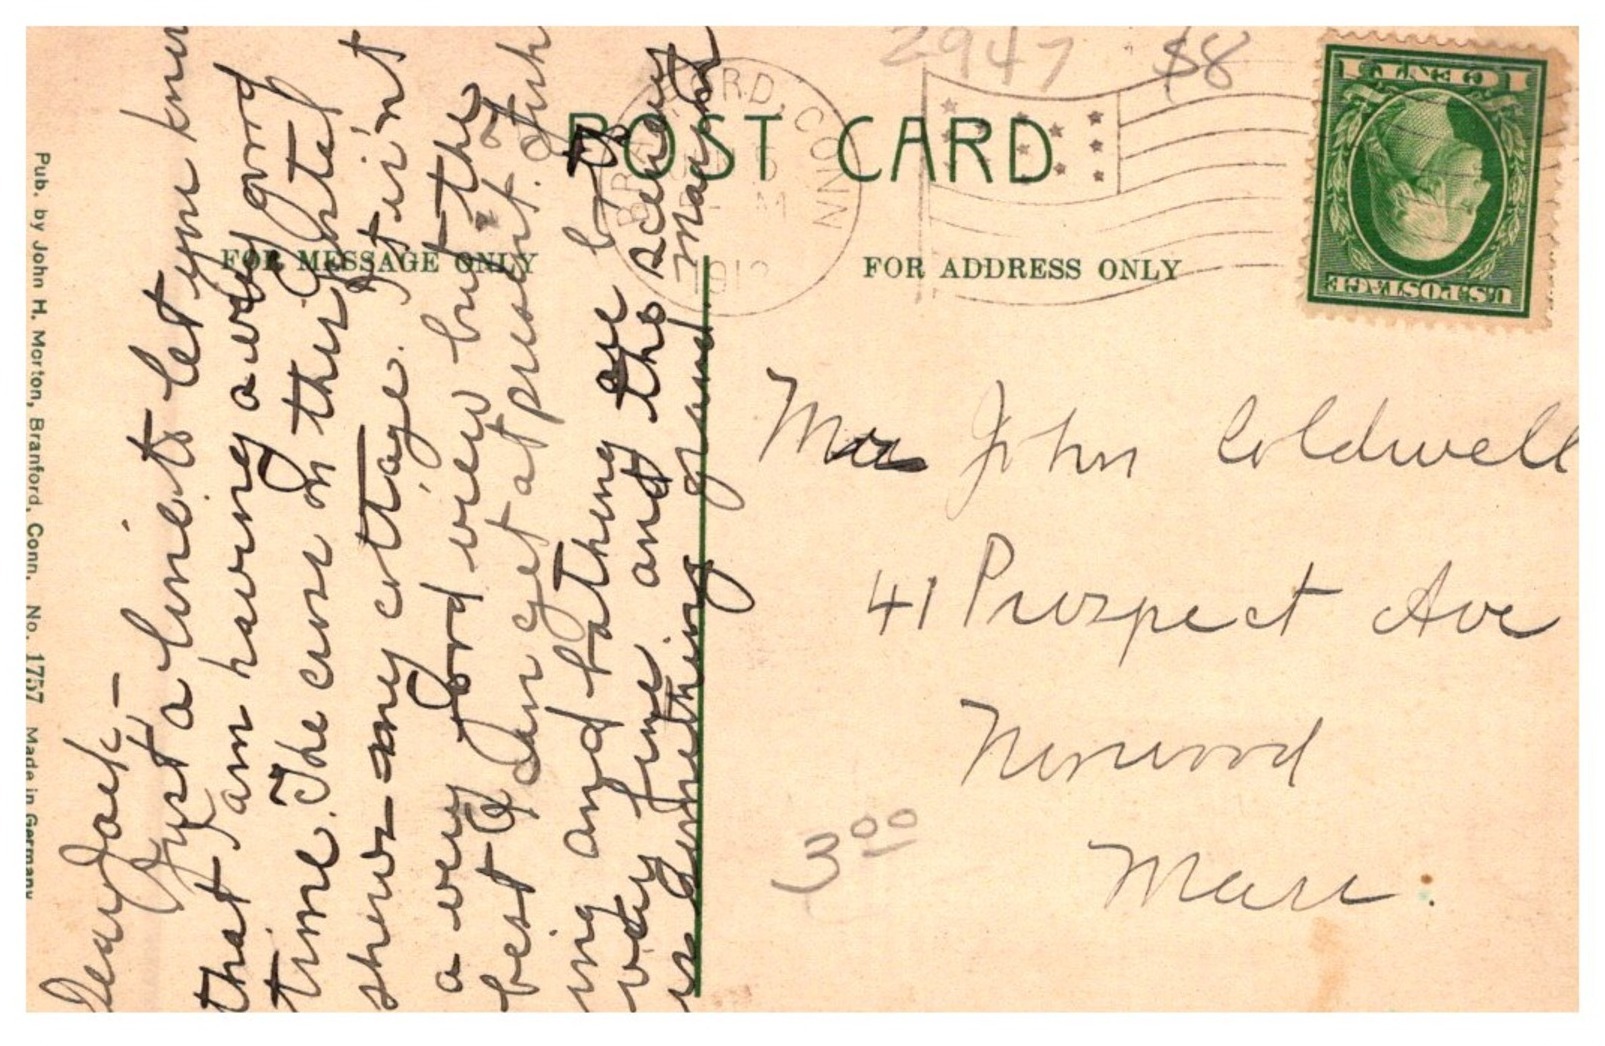 2947 $8
POST CARD
BRANFORD, CONN
M
1912
FOR MESSAGE ONLY
FOR ADDRESS ONLY
1 CENT 1
U.S. POSTAGE
Pub. by John H. Morton, Branford, Conn. No. 1757 Made in Germany
Dear Jack,—
Just a line to let you know
that I am having a very good
time. The cross on this postal
shows my cottage. It isn't
a very good view but the
best I can get at present. Fish
ing and bathing are both
very fine and the scenery
is something grand.
Margaret
Mr John Coldwell
41 Prospect Ave
Norwood
Mass.
3.00